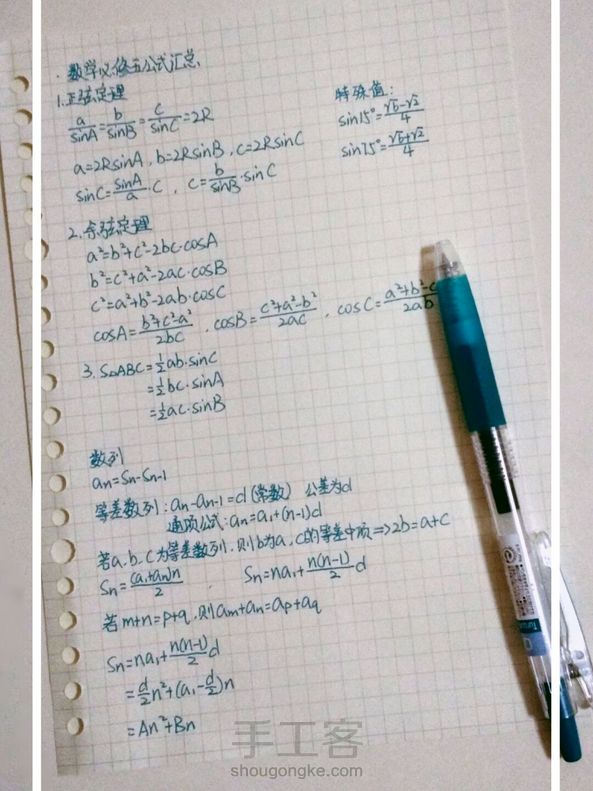 ·数学必修五公式汇总
1.正弦定理
a/sinA=b/sinB=c/sinC=2R
a=2RsinA,b=2RsinB,c=2RsinC
sinC=sinA/a·C,c=b/sinB·sinC
特殊值:
sin15°=√6-√2/4
sin75°=√6+√2/4
2.余弦定理
a²=b²+c²-2bc·cosA
b²=c²+a²-2ac·cosB
c²=a²+b²-2ab·cosC
cosA=b²+c²-a²/2bc,cosB=c²+a²-b²/2ac,cosC=a²+b²-c/2ab
3.S△ABC=½ab·sinC
=½bc·sinA
=½ac·sinB
数列
an=Sn-Sn-1
等差数列:an-an-1=d(常数) 公差为d
通项公式:an=a1+(n-1)d
若a.b.c为等差数列.则b为a.c的等差中项=>2b=a+c
Sn=(a1+an)n/2 , Sn=na1+n(n-1)/2 d
若m+n=p+q,则am+an=ap+aq
Sn=na1+n(n-1)/2 d
=d/2 n²+(a1-d/2)n
=An²+Bn
手工客
shougongke.com